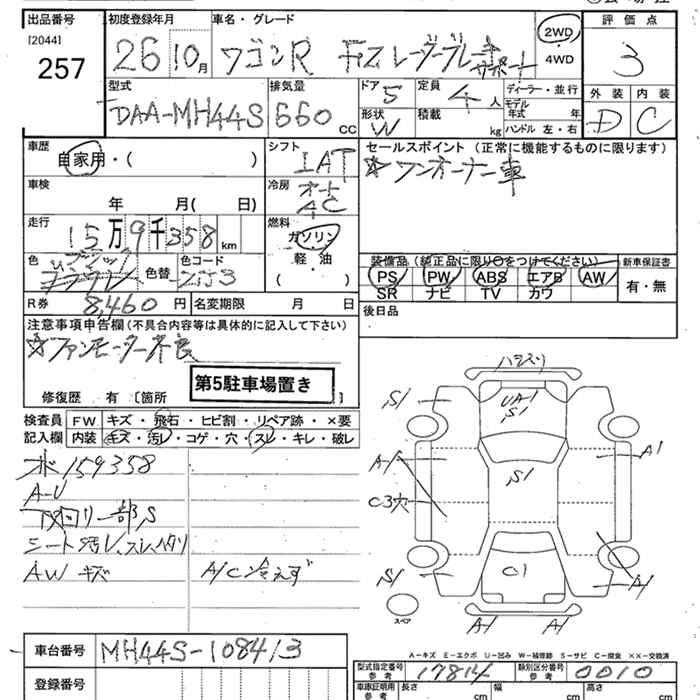 出品番号
[2044]
257
初度登録年月
26 10月
車名・グレード
ワゴンR FZ レーダーブレーキサポート
2WD
4WD
評価点
3
型式
DAA-MH44S
排気量
660 CC
ドア 5
形状 W
定員 4 人
積載 kg
ディーラー・並行
モデル年式 年
ハンドル 左・右
外装 内装
D C
車歴
自家用・( )
シフト
IAT
セールスポイント (正常に機能するものに限ります)
☆ワンオーナー車
車検
年 月( 日)
冷房
オート
AC
走行
15万9千358km
燃料
ガソリン
軽・油
( )
色
色替
色コード
ZJ3
装備品 (純正品に限り○をつけてください)
PS PW ABS エアB AW
SR ナビ TV カワ
新車保証書
有・無
R券 8,460 円
名変期限 月 日
後日品
注意事項申告欄 (不具合内容等は具体的に記入して下さい)
☆ファンモーター不良
第5駐車場置き
修復歴 有 〔箇所
検査員
記入欄
FW キズ・飛石・ヒビ割・リペア跡・×要
内装 キズ・汚レ・コゲ・穴・スレ・キレ・破レ
159358
A-U
下回リ一部S
シート汚レ、スレ、ヘタリ
AW キズ
A/C冷えず
ハズリ
S1
UA1
S1
A1
A-1
S1
C3穴
C1
S1
A1
A1
A1
スペア
A-キズ E-エクボ U-凹み W-補修跡 S-サビ C-腐食 ××-交換済
車台番号
MH44S-108413
登録番号
型式指定番号
参考
17814
類別区分番号
参考
0010
車庫証明用
参考
長さ cm
幅 cm
高さ cm